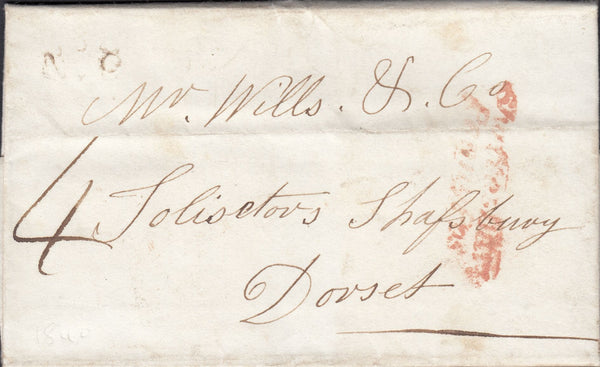 No. 8
Mr. Wills. &. Co
4 Solisctors Shafsbury
Dorset
1840